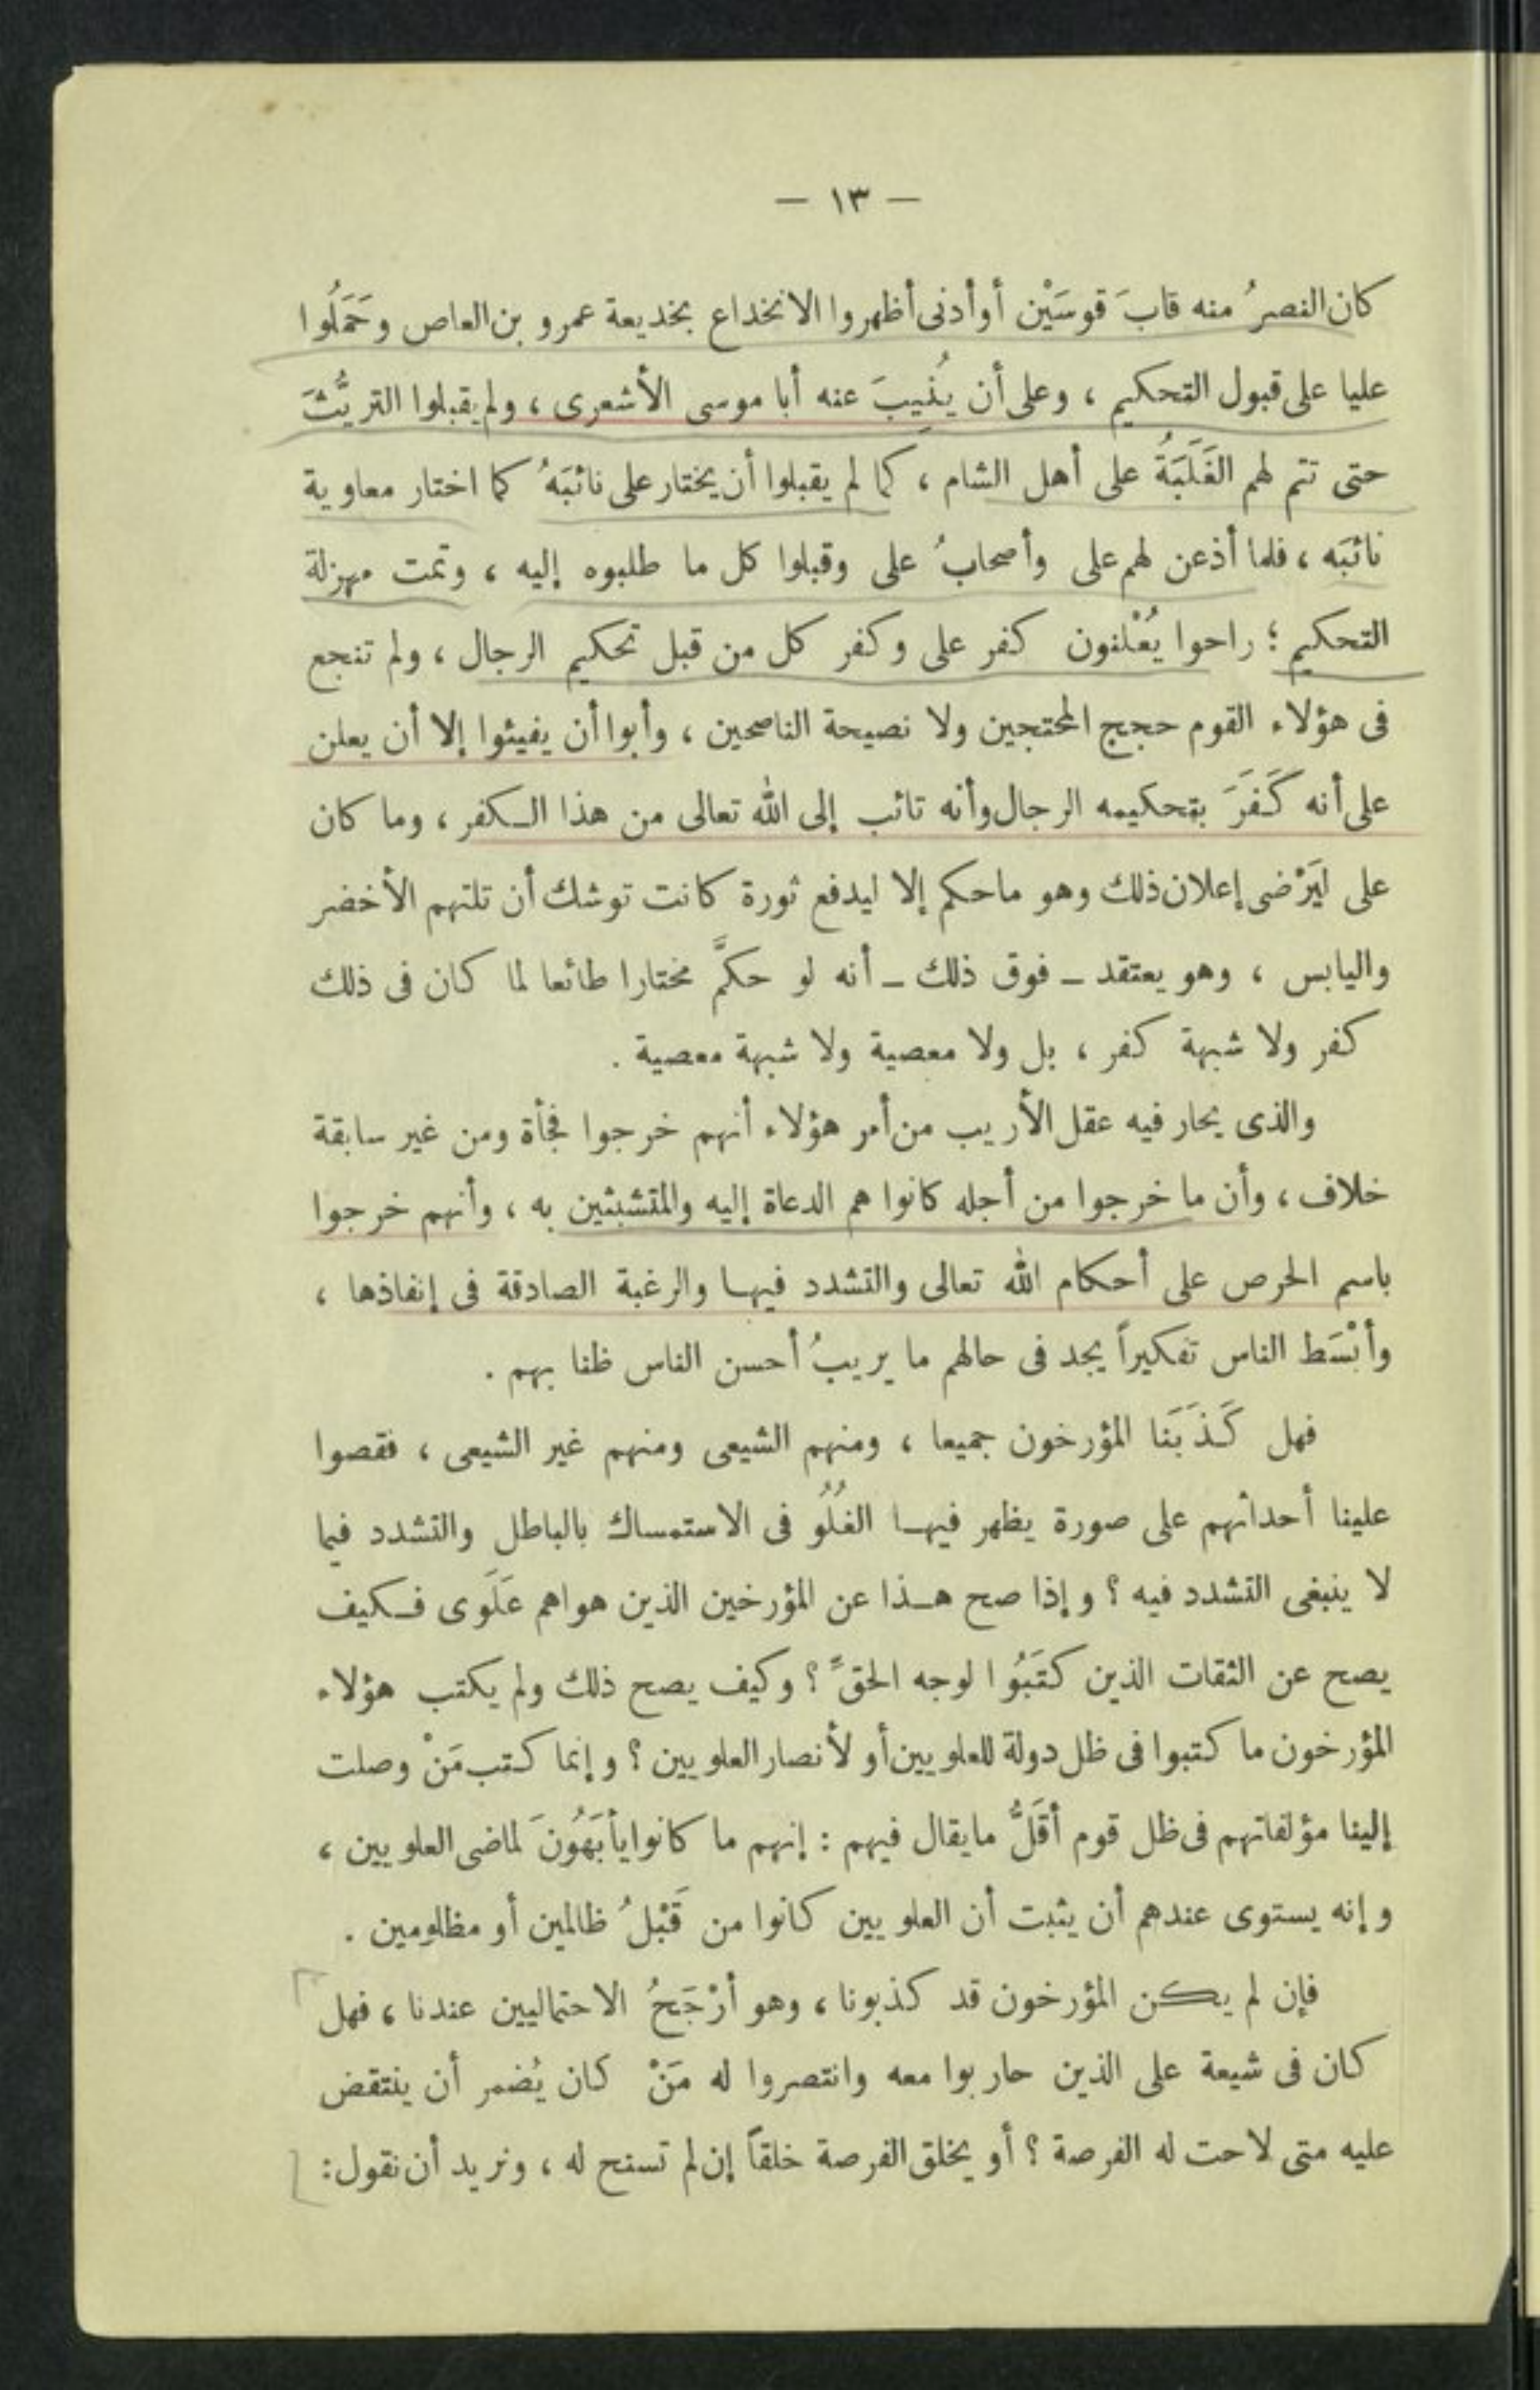 — ١٣ —
كان النصرُ منه قابَ قوسَيْن أو أدنى أظهروا الانخداع بخديعة عمرو بن العاص وحَمَلُوا
عليا على قبول التحكيم ، وعلى أن يُنِيبَ عنه أبا موسى الأشعرى ، ولم يقبلوا التريُّثَ
حتى تتم لهم الغَلَبَةُ على أهل الشام ، كما لم يقبلوا أن يختار على نائبَهُ كما اختار معاوية
نائبَه ، فلما أذعن لهم على وأصحابُ على وقبلوا كل ما طلبوه إليه ، وتمت مهزلة
التحكيم ؛ راحوا يُعْلنون كفر على وكفر كل من قبل تحكيم الرجال ، ولم تنجع
فى هؤلاء القوم حجج المحتجين ولا نصيحة الناصحين ، وأبوا أن يفيئوا إلا أن يعلن
على أنه كَفَرَ بتحكيمه الرجال وأنه تائب إلى الله تعالى من هذا الكفر ، وما كان
على ليَرْضى إعلان ذلك وهو ما حكم إلا ليدفع ثورة كانت توشك أن تلتهم الأخضر
واليابس ، وهو يعتقد ـ فوق ذلك ـ أنه لو حكمَّ مختارا طائعا لما كان فى ذلك
كفر ولا شبهة كفر ، بل ولا معصية ولا شبهة معصية .
والذى يحار فيه عقل الأريب من أمر هؤلاء أنهم خرجوا فجأة ومن غير سابقة
خلاف ، وأن ما خرجوا من أجله كانوا هم الدعاة إليه والمتشبثين به ، وأنهم خرجوا
باسم الحرص على أحكام الله تعالى والتشدد فيها والرغبة الصادقة فى إنفاذها ،
وأبْسَط الناس تفكيراً يجد فى حالهم ما يريبُ أحسن الناس ظنا بهم .
فهل كَذَبَنا المؤرخون جميعا ، ومنهم الشيعى ومنهم غير الشيعى ، فقصوا
علينا أحداثهم على صورة يظهر فيها الغُلُو فى الاستمساك بالباطل والتشدد فيما
لا ينبغى التشدد فيه ؟ وإذا صح هذا عن المؤرخين الذين هواهم عَلَوى فكيف
يصح عن الثقات الذين كتَبُوا لوجه الحقِّ ؟ وكيف يصح ذلك ولم يكتب هؤلاء
المؤرخون ما كتبوا فى ظل دولة للعلويين أو لأنصار العلويين ؟ وإنما كتب مَنْ وصلت
إلينا مؤلفاتهم فى ظل قوم أقَلُّ ما يقال فيهم : إنهم ما كانوا يأبَهُونَ لماضى العلويين ،
وإنه يستوى عندهم أن يثبت أن العلويين كانوا من قَبْلُ ظالمين أو مظلومين .
فإن لم يكن المؤرخون قد كذبونا ، وهو أرْجَحُ الاحتماليين عندنا ، فهل
كان فى شيعة على الذين حاربوا معه وانتصروا له مَنْ كان يُضمر أن ينتقض
عليه متى لاحت له الفرصة ؟ أو يخلق الفرصة خلقاً إن لم تسنح له ، ونريد أن نقول :